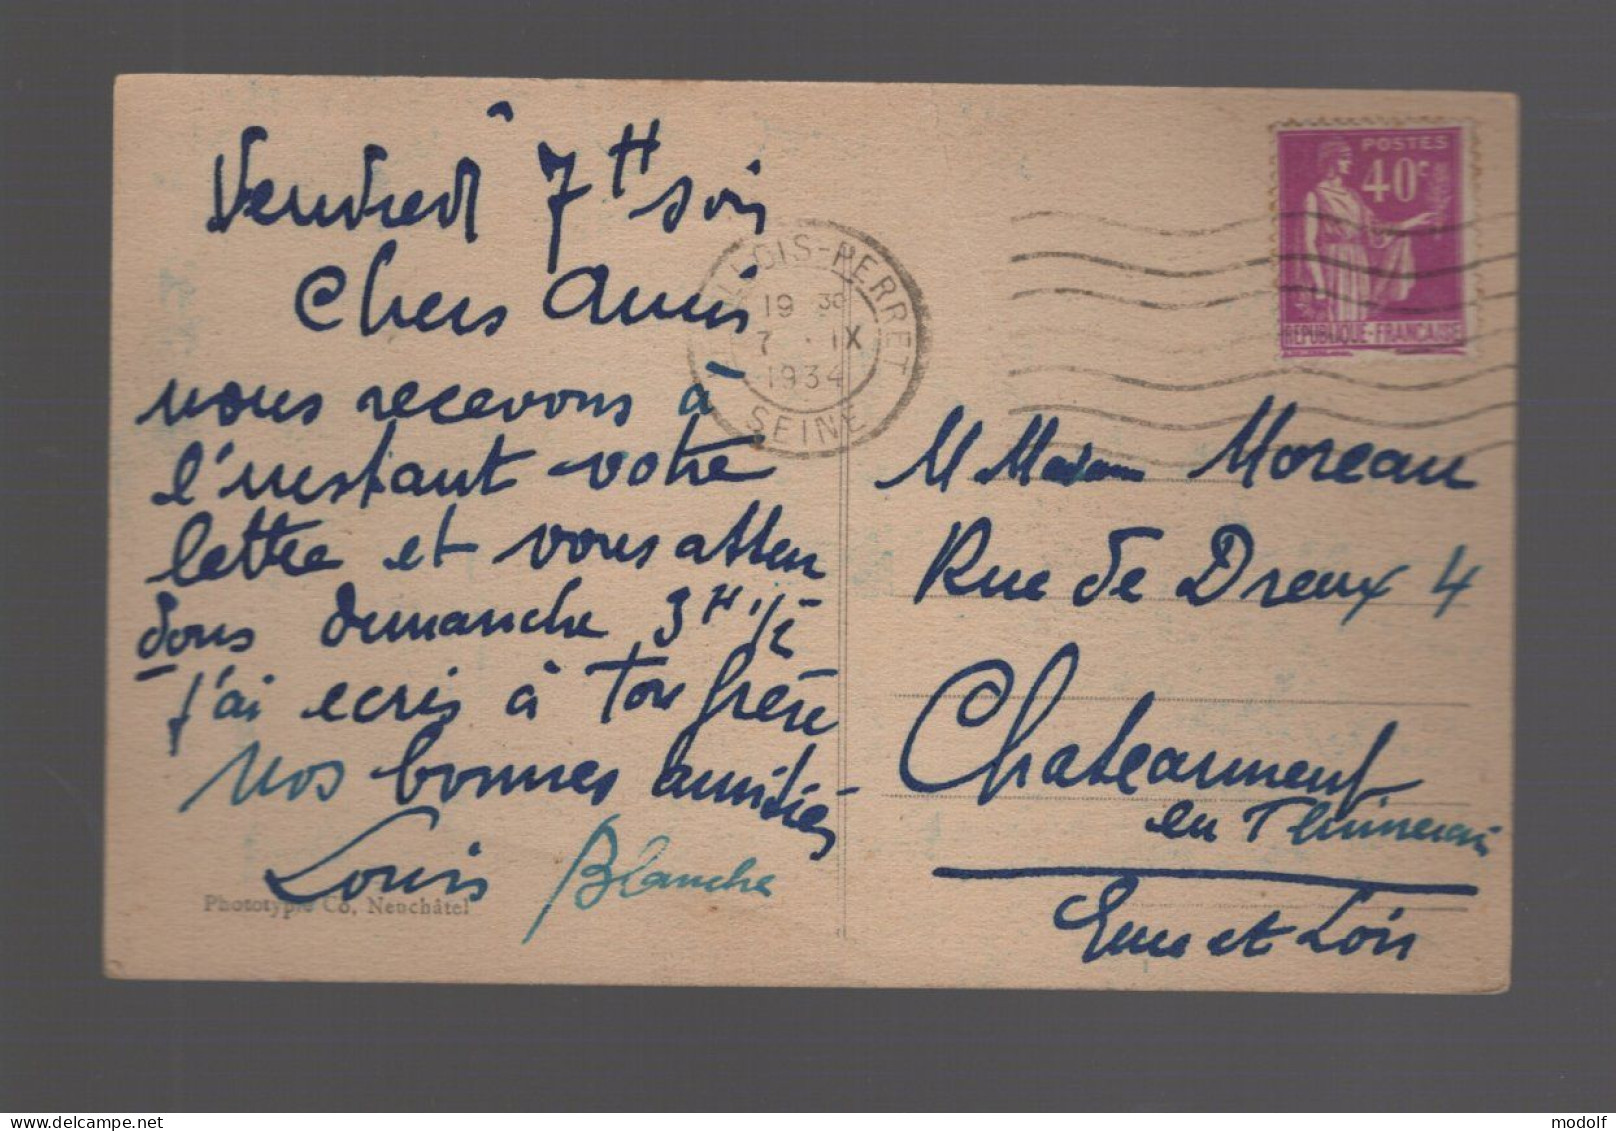 Vendredi 7H soir
Chers Amis
nous recevons à
l'instant votre
lettre et vous atten
dons dimanche 3H 1/2
j'ai ecris à ton frère
Nos bonnes amitiés
Louis Blanche
Phototypie Co, Neuchâtel
LEVALLOIS-PERRET
19 30
7 · IX
1934
SEINE
POSTES
40c
REPUBLIQUE-FRANCAISE
M Madame Moreau
Rue de Dreux 4
Chateauneuf
en Thimerais
Eure et Loir
modolf